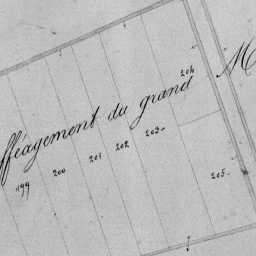 204
M
fféagement du grand
199
200
201
202
203.
205.